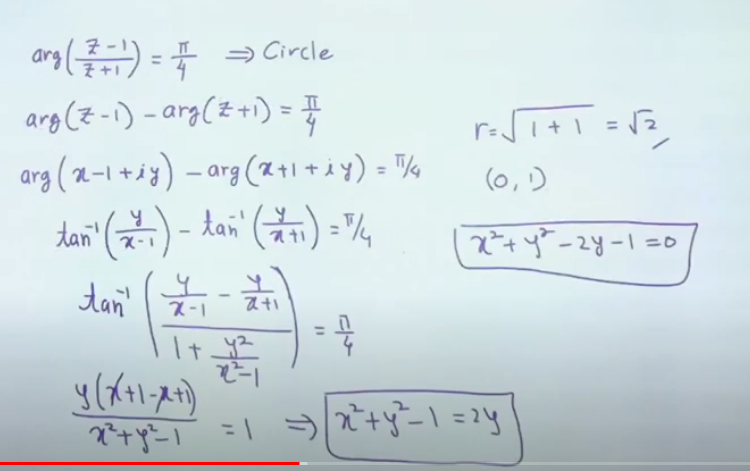 arg(z-1/z+1) = π/4 ⇒ Circle
arg(z-1) - arg(z+1) = π/4
arg(x-1+iy) - arg(x+1+iy) = π/4
tan⁻¹(y/x-1) - tan⁻¹(y/x+1) = π/4
tan⁻¹((y/x-1 - y/x+1)/(1 + y²/x²-1)) = π/4
y(x+1-x+1)/x²+y²-1 = 1 ⇒ x²+y²-1 = 2y
r = √1+1 = √2
(0, 1)
x²+y²-2y-1=0